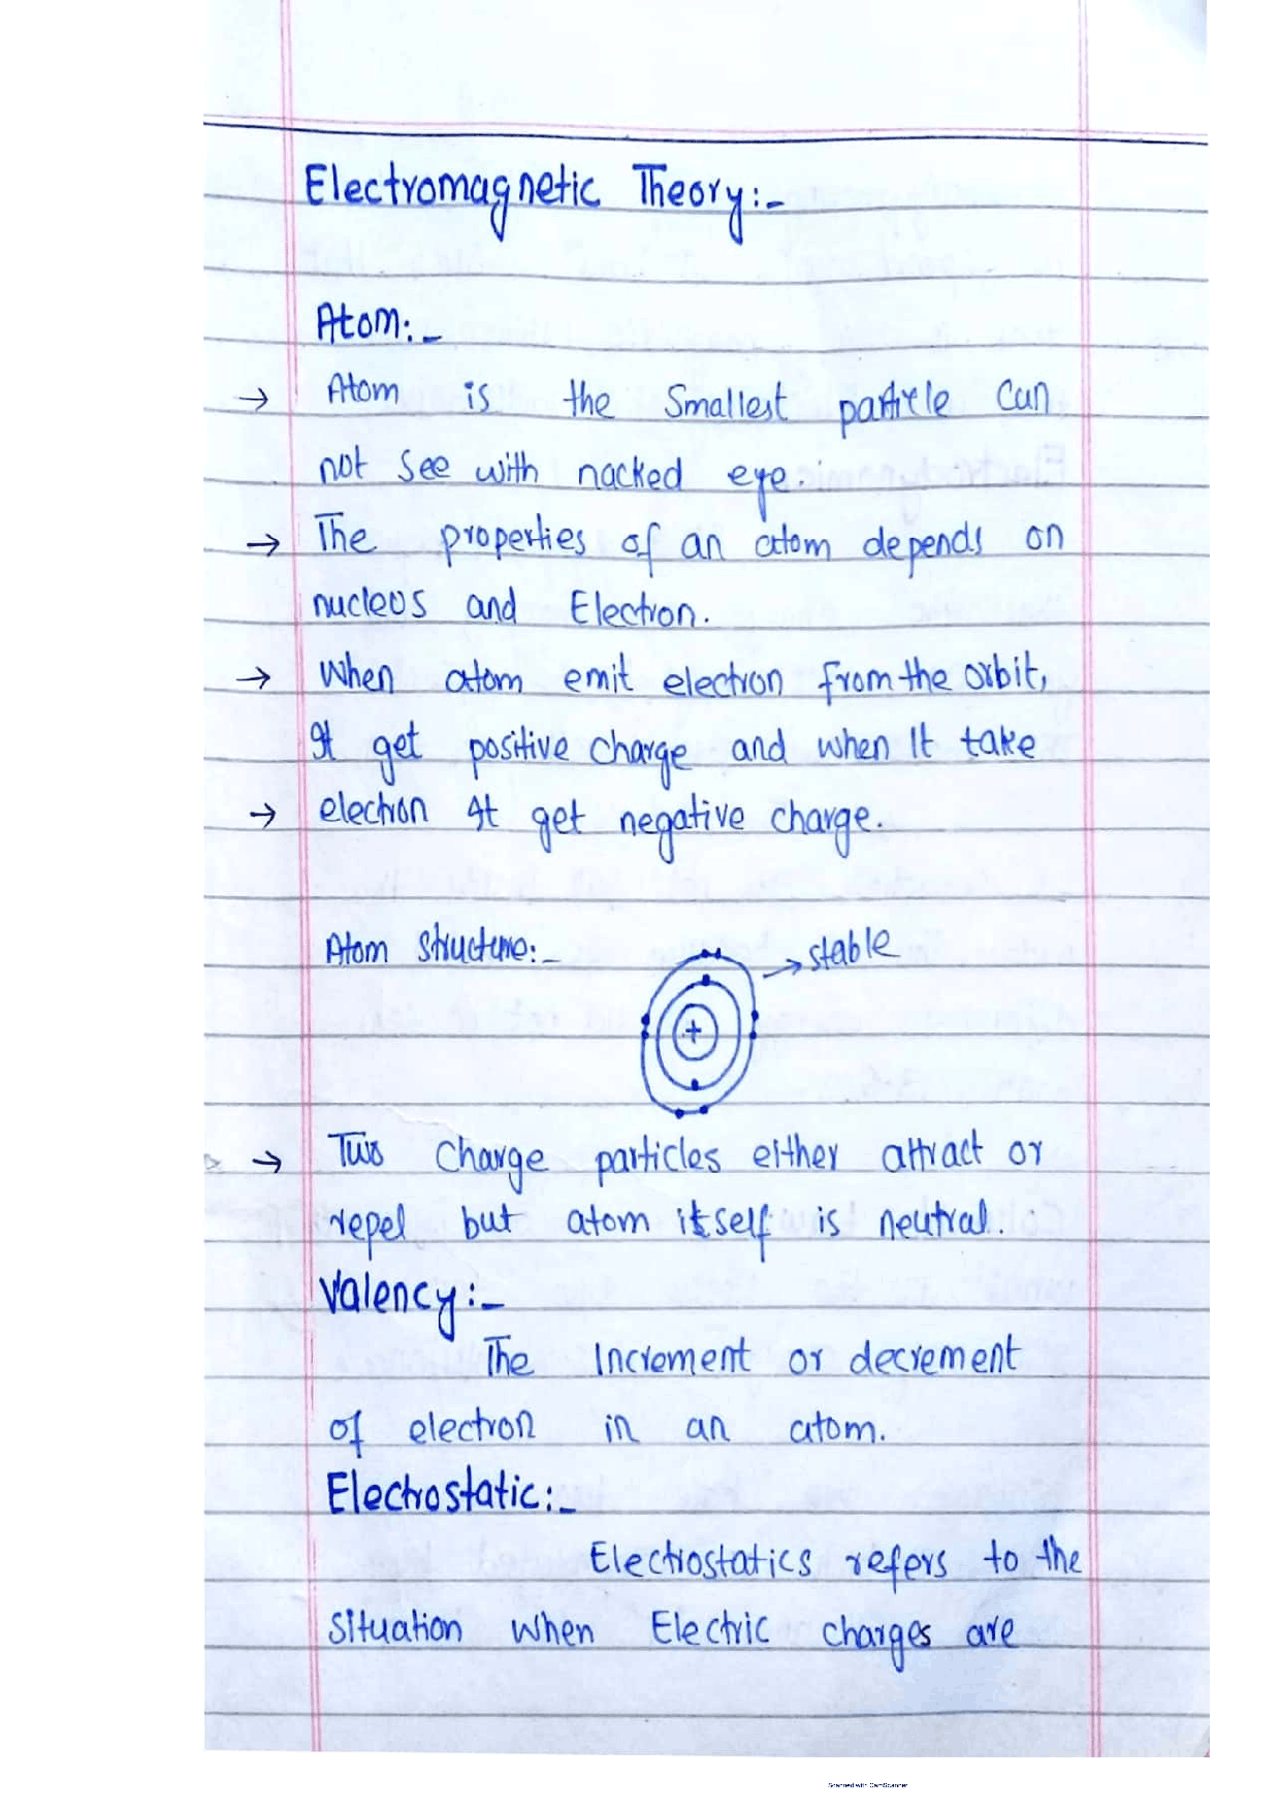 Electromagnetic Theory:-
Atom:-
→ Atom is the Smallest particle Can
not See with nacked eye.
→ The properties of an atom depends on
nucleos and Electron.
→ When atom emit electron from the orbit,
It get positive charge and when It take
→ electron It get negative charge.
Atom structure:-
→ stable
+
→ Two Charge particles either attract or
repel but atom itself is neutral.
Valency:-
The Increment or decrement
of electron in an atom.
Electrostatic:-
Electrostatics refers to the
Situation when Electric charges are
Scanned with CamScanner